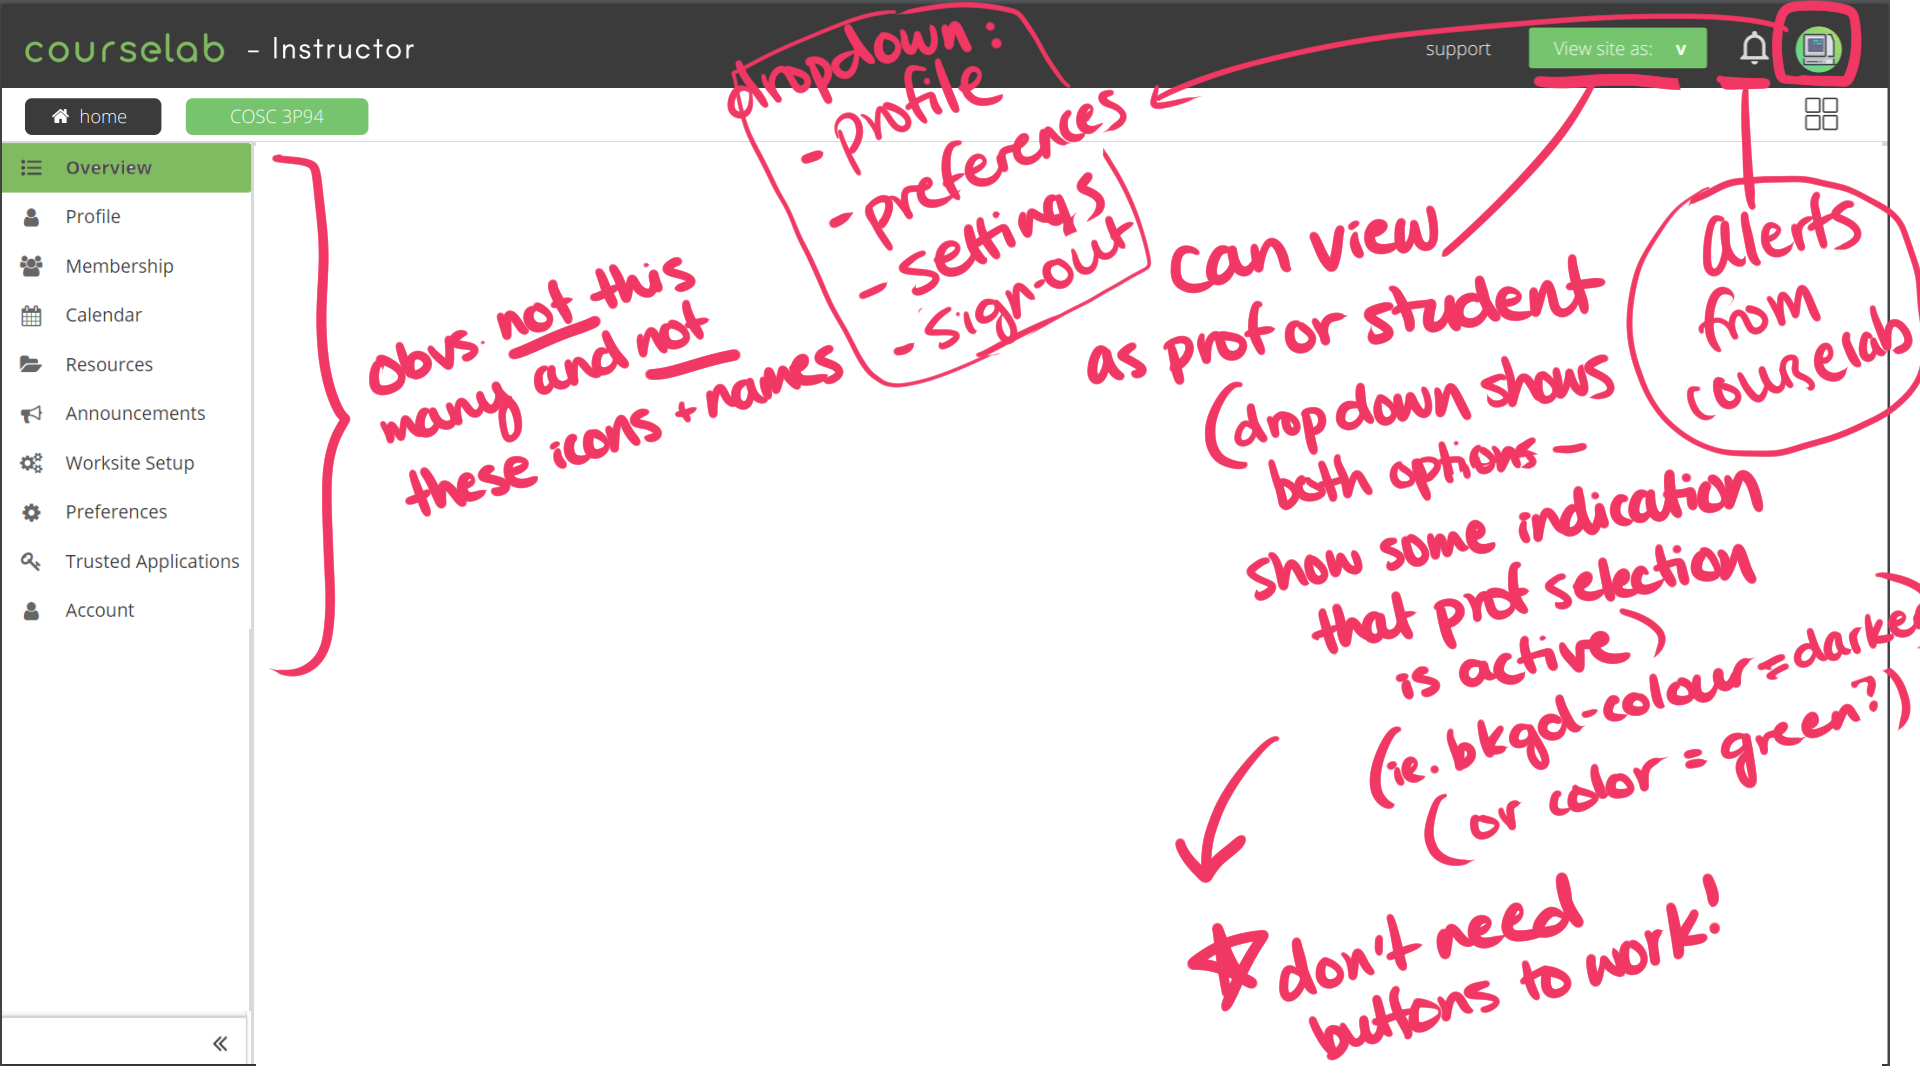 courselab - Instructor
support
View site as: v
home
COSC 3P94
Overview
Profile
Membership
Calendar
Resources
Announcements
Worksite Setup
Preferences
Trusted Applications
Account
«
dropdown:
- profile
- preferences
- settings
- sign-out
obvs. not this
many and not
these icons + names
can view
as prof or student
(dropdown shows
both options -
show some indication
that prof selection
is active)
(ie. bkgd-colour = darker)
(or color = green?)
don't need
buttons to work!
alerts
from
courselab